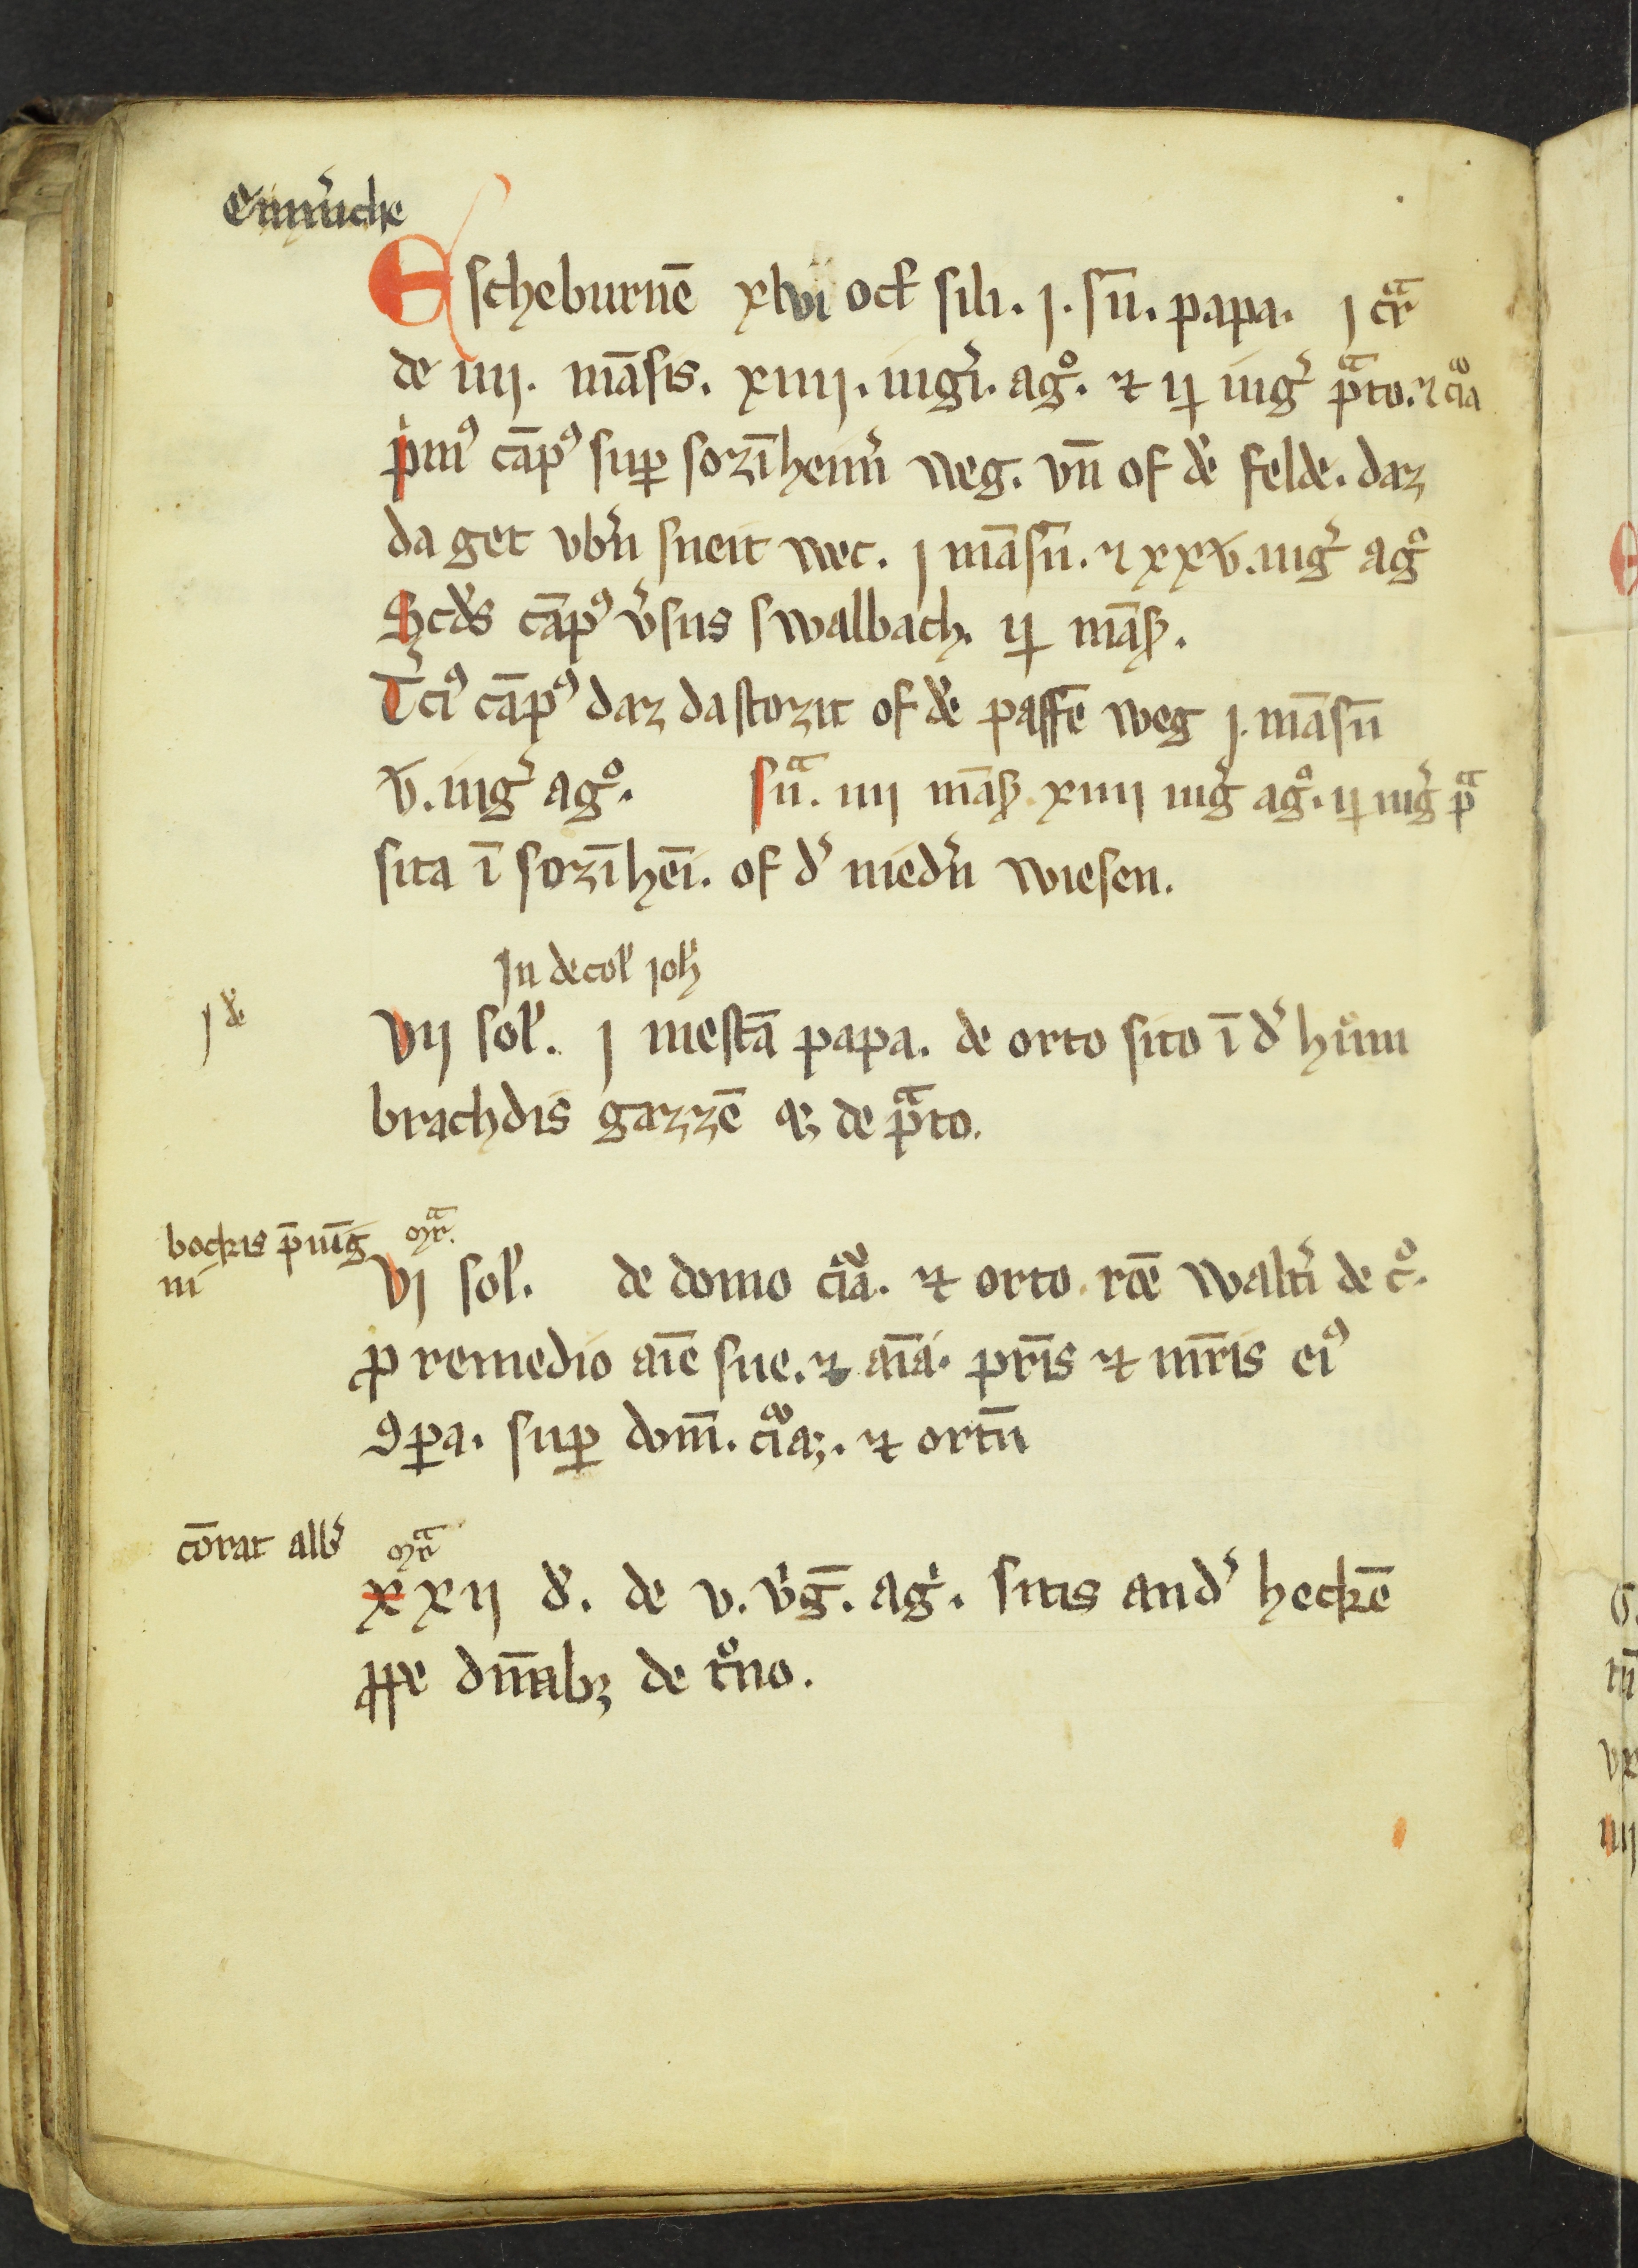 Emm̅iche
Escheburnē xlvi oct̄ sili. j. sn̄. papa. j cͬa
de iiij. māsis. xiiij. iugͥ. agͦ. ⁊ ij iug̾ pͣto. ⁊ cͥa
pͥmꝰ cāpꝰ sup̱ sozīheim̾ weg. vn̄ of dē felde. daz
da get vb̾n sneit wec. j māsū. ⁊ xxv. iug̾ agͦ
Scd̾s cāpꝰ v̾sus swalbach. ij mās̄.
T̾ciꝰ cāpꝰ daz da stozit of dē paffē weg j. māsū
v. iug̾ agͦ. sūͣ. iiij mās̄. xiiij iug̾ agͦ. ij iug̾ pͣ
sita ī sozīhēi. of d̾ nied̾n wiesen.
Jn decol̾ ioh̄
j d̾e
vij sol̾. j mestā papa. de orto sito ī d̾ hūm
brachdis gazzē qꝫ de pͣto.
bockis p̄nīg
iii
mͣr.
vj sol̾. de domo cͥa. ⁊ orto. rcē walt̾i de cͦ.
ꝓ remedio aīe sue. ⁊ aīa. pr̄is ⁊ mr̄is eiꝰ
ꝯꝑa. suꝑ dom̄. ⁊ ortū
cōrat alb̾
mͣr
xxij d̾. de v. v̾ḡ. agͥ. sitis and̾ heckē
ꝓpe dn̄abꝫ de tͦno.